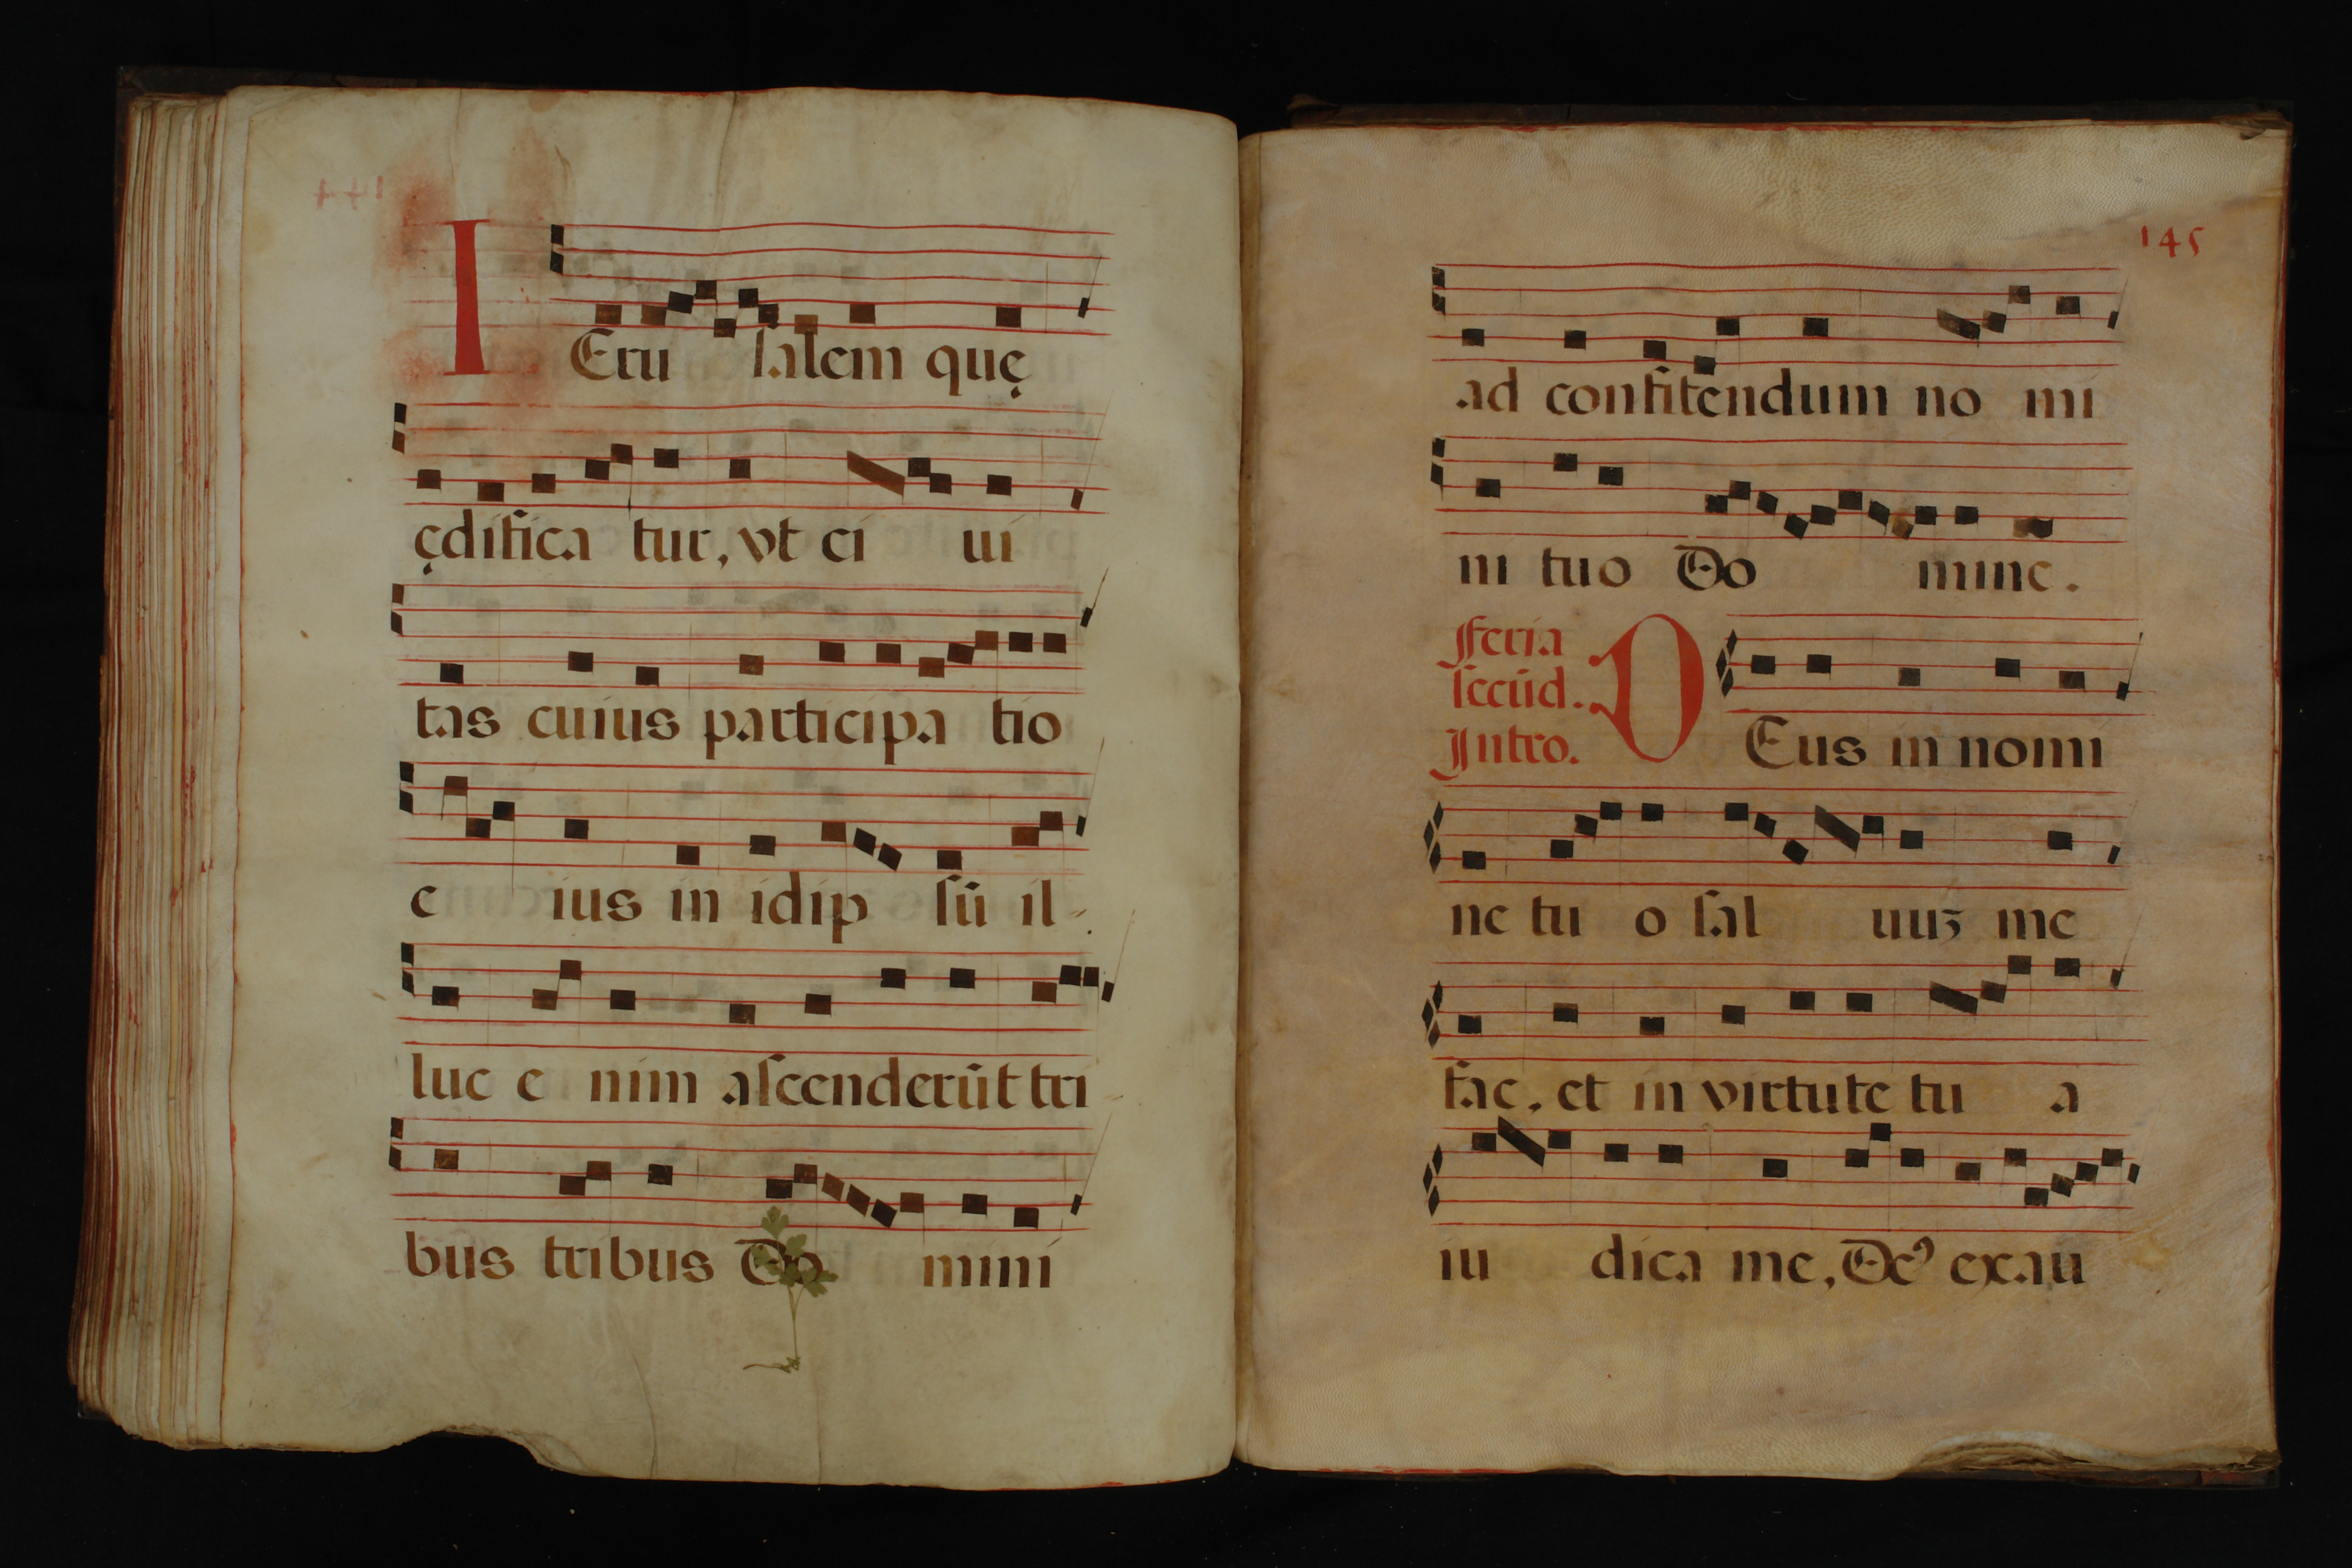 144
IEru salem quę
ędifica tur, vt ci ui
tas cuius participa tio
e ius in idip sū il-
luc e nim ascenderūt tri
bus tribus Do mini
145
ad confitendum no mi
ni tuo Do mine.
Feria
secūd.
Intro.
DEus in nomi
ne tu o sal uuꝫ me
fac, et in virtute tu a
iu dica me, Deꝰ exau